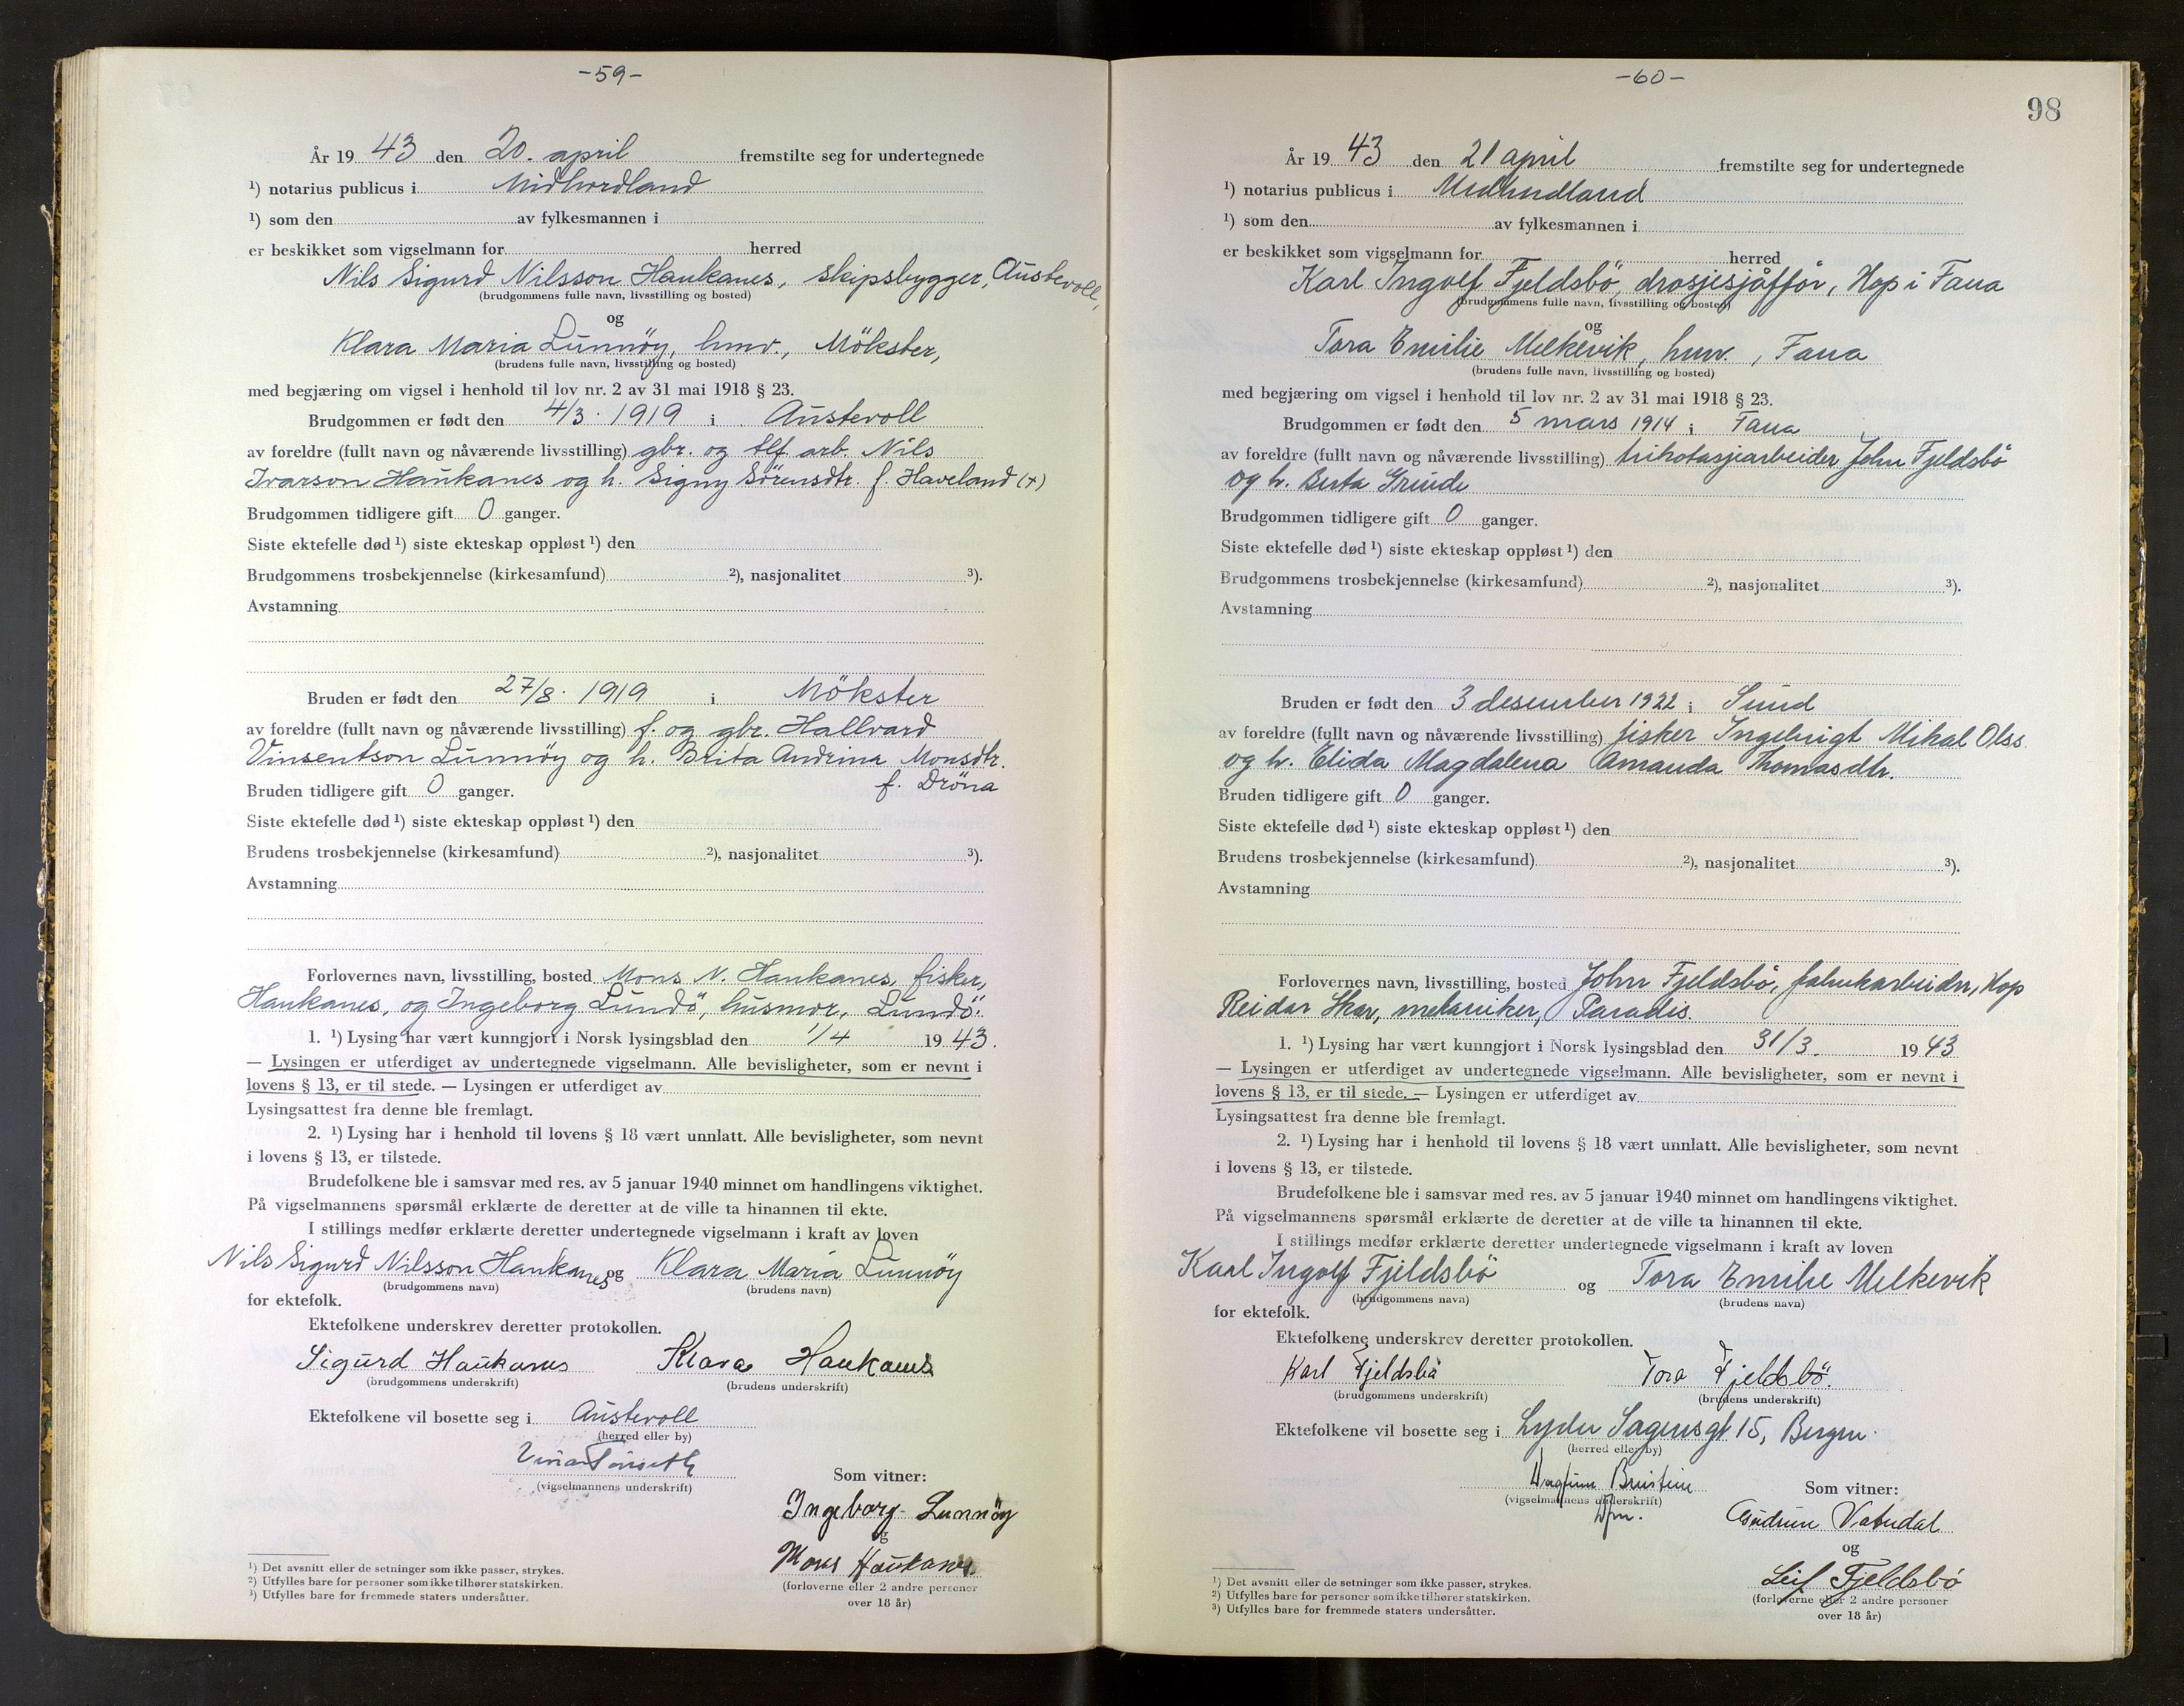 -59-
År 19 43 den 20. april fremstilte seg for undertegnede
¹) notarius publicus i Midhordland
¹) som den av fylkesmannen i
er beskikket som vigselmann for herred
Nils Sigurd Nilsson Haukanes, skipsbygger, Austevoll,
(brudgommens fulle navn, livsstilling og bosted)
og
Klara Maria Lunnöy, hmv., Mökster,
(brudens fulle navn, livsstilling og bosted)
med begjæring om vigsel i henhold til lov nr. 2 av 31 mai 1918 § 23.
Brudgommen er født den 4/3. 1919 i Austevoll
av foreldre (fullt navn og nåværende livsstilling) gbr. og tlf. arb. Nils
Ivarson Haukanes og h. Signy Sörensdtr. f. Haveland (+)
Brudgommen tidligere gift 0 ganger.
Siste ektefelle død ¹) siste ekteskap oppløst ¹) den
Brudgommens trosbekjennelse (kirkesamfund) ²), nasjonalitet ³).
Avstamning
Bruden er født den 27/8. 1919 i Mökster
av foreldre (fullt navn og nåværende livsstilling) f. og gbr. Hallvard
Vinsentson Lunnöy og h. Brita Andrina Monsdtr.
f. Dröna
Bruden tidligere gift 0 ganger.
Siste ektefelle død ¹) siste ekteskap oppløst ¹) den
Brudens trosbekjennelse (kirkesamfund) ²), nasjonalitet ³).
Avstamning
Forlovernes navn, livsstilling, bosted Mons N. Haukanes, fisker,
Haukanes, og Ingeborg Lundö, husmor, Lundö.
1. ¹) Lysing har vært kunngjort i Norsk lysingsblad den 1/4 19 43.
— Lysingen er utferdiget av undertegnede vigselmann. Alle bevisligheter, som er nevnt i
lovens § 13, er til stede. — Lysingen er utferdiget av
Lysingsattest fra denne ble fremlagt.
2. ¹) Lysing har i henhold til lovens § 18 vært unnlatt. Alle bevisligheter, som nevnt
i lovens § 13, er tilstede.
Brudefolkene ble i samsvar med res. av 5 januar 1940 minnet om handlingens viktighet.
På vigselmannens spørsmål erklærte de deretter at de ville ta hinannen til ekte.
I stillings medfør erklærte deretter undertegnede vigselmann i kraft av loven
Nils Sigurd Nilsson Haukanes og Klara Maria Lunnöy
(brudgommens navn) (brudens navn)
for ektefolk.
Ektefolkene underskrev deretter protokollen.
Sigurd Haukanes Klara Haukanes
(brudgommens underskrift) (brudens underskrift)
Ektefolkene vil bosette seg i Austevoll
(herred eller by)
(vigselmannens underskrift)
Som vitner:
Ingeborg Lunnöy
og
Mons Haukanes
(forloverne eller 2 andre personer
over 18 år)
¹) Det avsnitt eller de setninger som ikke passer, strykes.
²) Utfylles bare for personer som ikke tilhører statskirken.
³) Utfylles bare for fremmede staters undersåtter.
-60-
98
År 19 43 den 21 april fremstilte seg for undertegnede
¹) notarius publicus i Midhordland
¹) som den av fylkesmannen i
er beskikket som vigselmann for herred
Karl Ingolf Fjeldsbö, drosjesjåfför, Hop i Fana
(brudgommens fulle navn, livsstilling og bosted)
og
Tora Emilie Melkevik, hmv., Fana
(brudens fulle navn, livsstilling og bosted)
med begjæring om vigsel i henhold til lov nr. 2 av 31 mai 1918 § 23.
Brudgommen er født den 5 mars 1914 i Fana
av foreldre (fullt navn og nåværende livsstilling) trikotasjearbeider John Fjeldsbö
og h. Berta Grinde
Brudgommen tidligere gift 0 ganger.
Siste ektefelle død ¹) siste ekteskap oppløst ¹) den
Brudgommens trosbekjennelse (kirkesamfund) ²), nasjonalitet ³).
Avstamning
Bruden er født den 3 desember 1922 i Sund
av foreldre (fullt navn og nåværende livsstilling) fisker Ingebrigt Mikal Olss.
og h. Elida Magdalena Amanda Thomasdtr.
Bruden tidligere gift 0 ganger.
Siste ektefelle død ¹) siste ekteskap oppløst ¹) den
Brudens trosbekjennelse (kirkesamfund) ²), nasjonalitet ³).
Avstamning
Forlovernes navn, livsstilling, bosted John Fjeldsbö, fabrikarbeider, Hop
Reidar Skar, mekaniker, Paradis.
1. ¹) Lysing har vært kunngjort i Norsk lysingsblad den 31/3. 19 43
— Lysingen er utferdiget av undertegnede vigselmann. Alle bevisligheter, som er nevnt i
lovens § 13, er til stede. — Lysingen er utferdiget av
Lysingsattest fra denne ble fremlagt.
2. ¹) Lysing har i henhold til lovens § 18 vært unnlatt. Alle bevisligheter, som nevnt
i lovens § 13, er tilstede.
Brudefolkene ble i samsvar med res. av 5 januar 1940 minnet om handlingens viktighet.
På vigselmannens spørsmål erklærte de deretter at de ville ta hinannen til ekte.
I stillings medfør erklærte deretter undertegnede vigselmann i kraft av loven
Karl Ingolf Fjeldsbö og Tora Emilie Melkevik
(brudgommens navn) (brudens navn)
for ektefolk.
Ektefolkene underskrev deretter protokollen.
Karl Fjeldsbö Tora Fjeldsbö.
(brudgommens underskrift) (brudens underskrift)
Ektefolkene vil bosette seg i Lyder Sagensgt 15, Bergen.
(herred eller by)
(vigselmannens underskrift)
Som vitner:
Gudrun Vatndal
og
Leif Fjeldsbö
(forloverne eller 2 andre personer
over 18 år)
¹) Det avsnitt eller de setninger som ikke passer, strykes.
²) Utfylles bare for personer som ikke tilhører statskirken.
³) Utfylles bare for fremmede staters undersåtter.